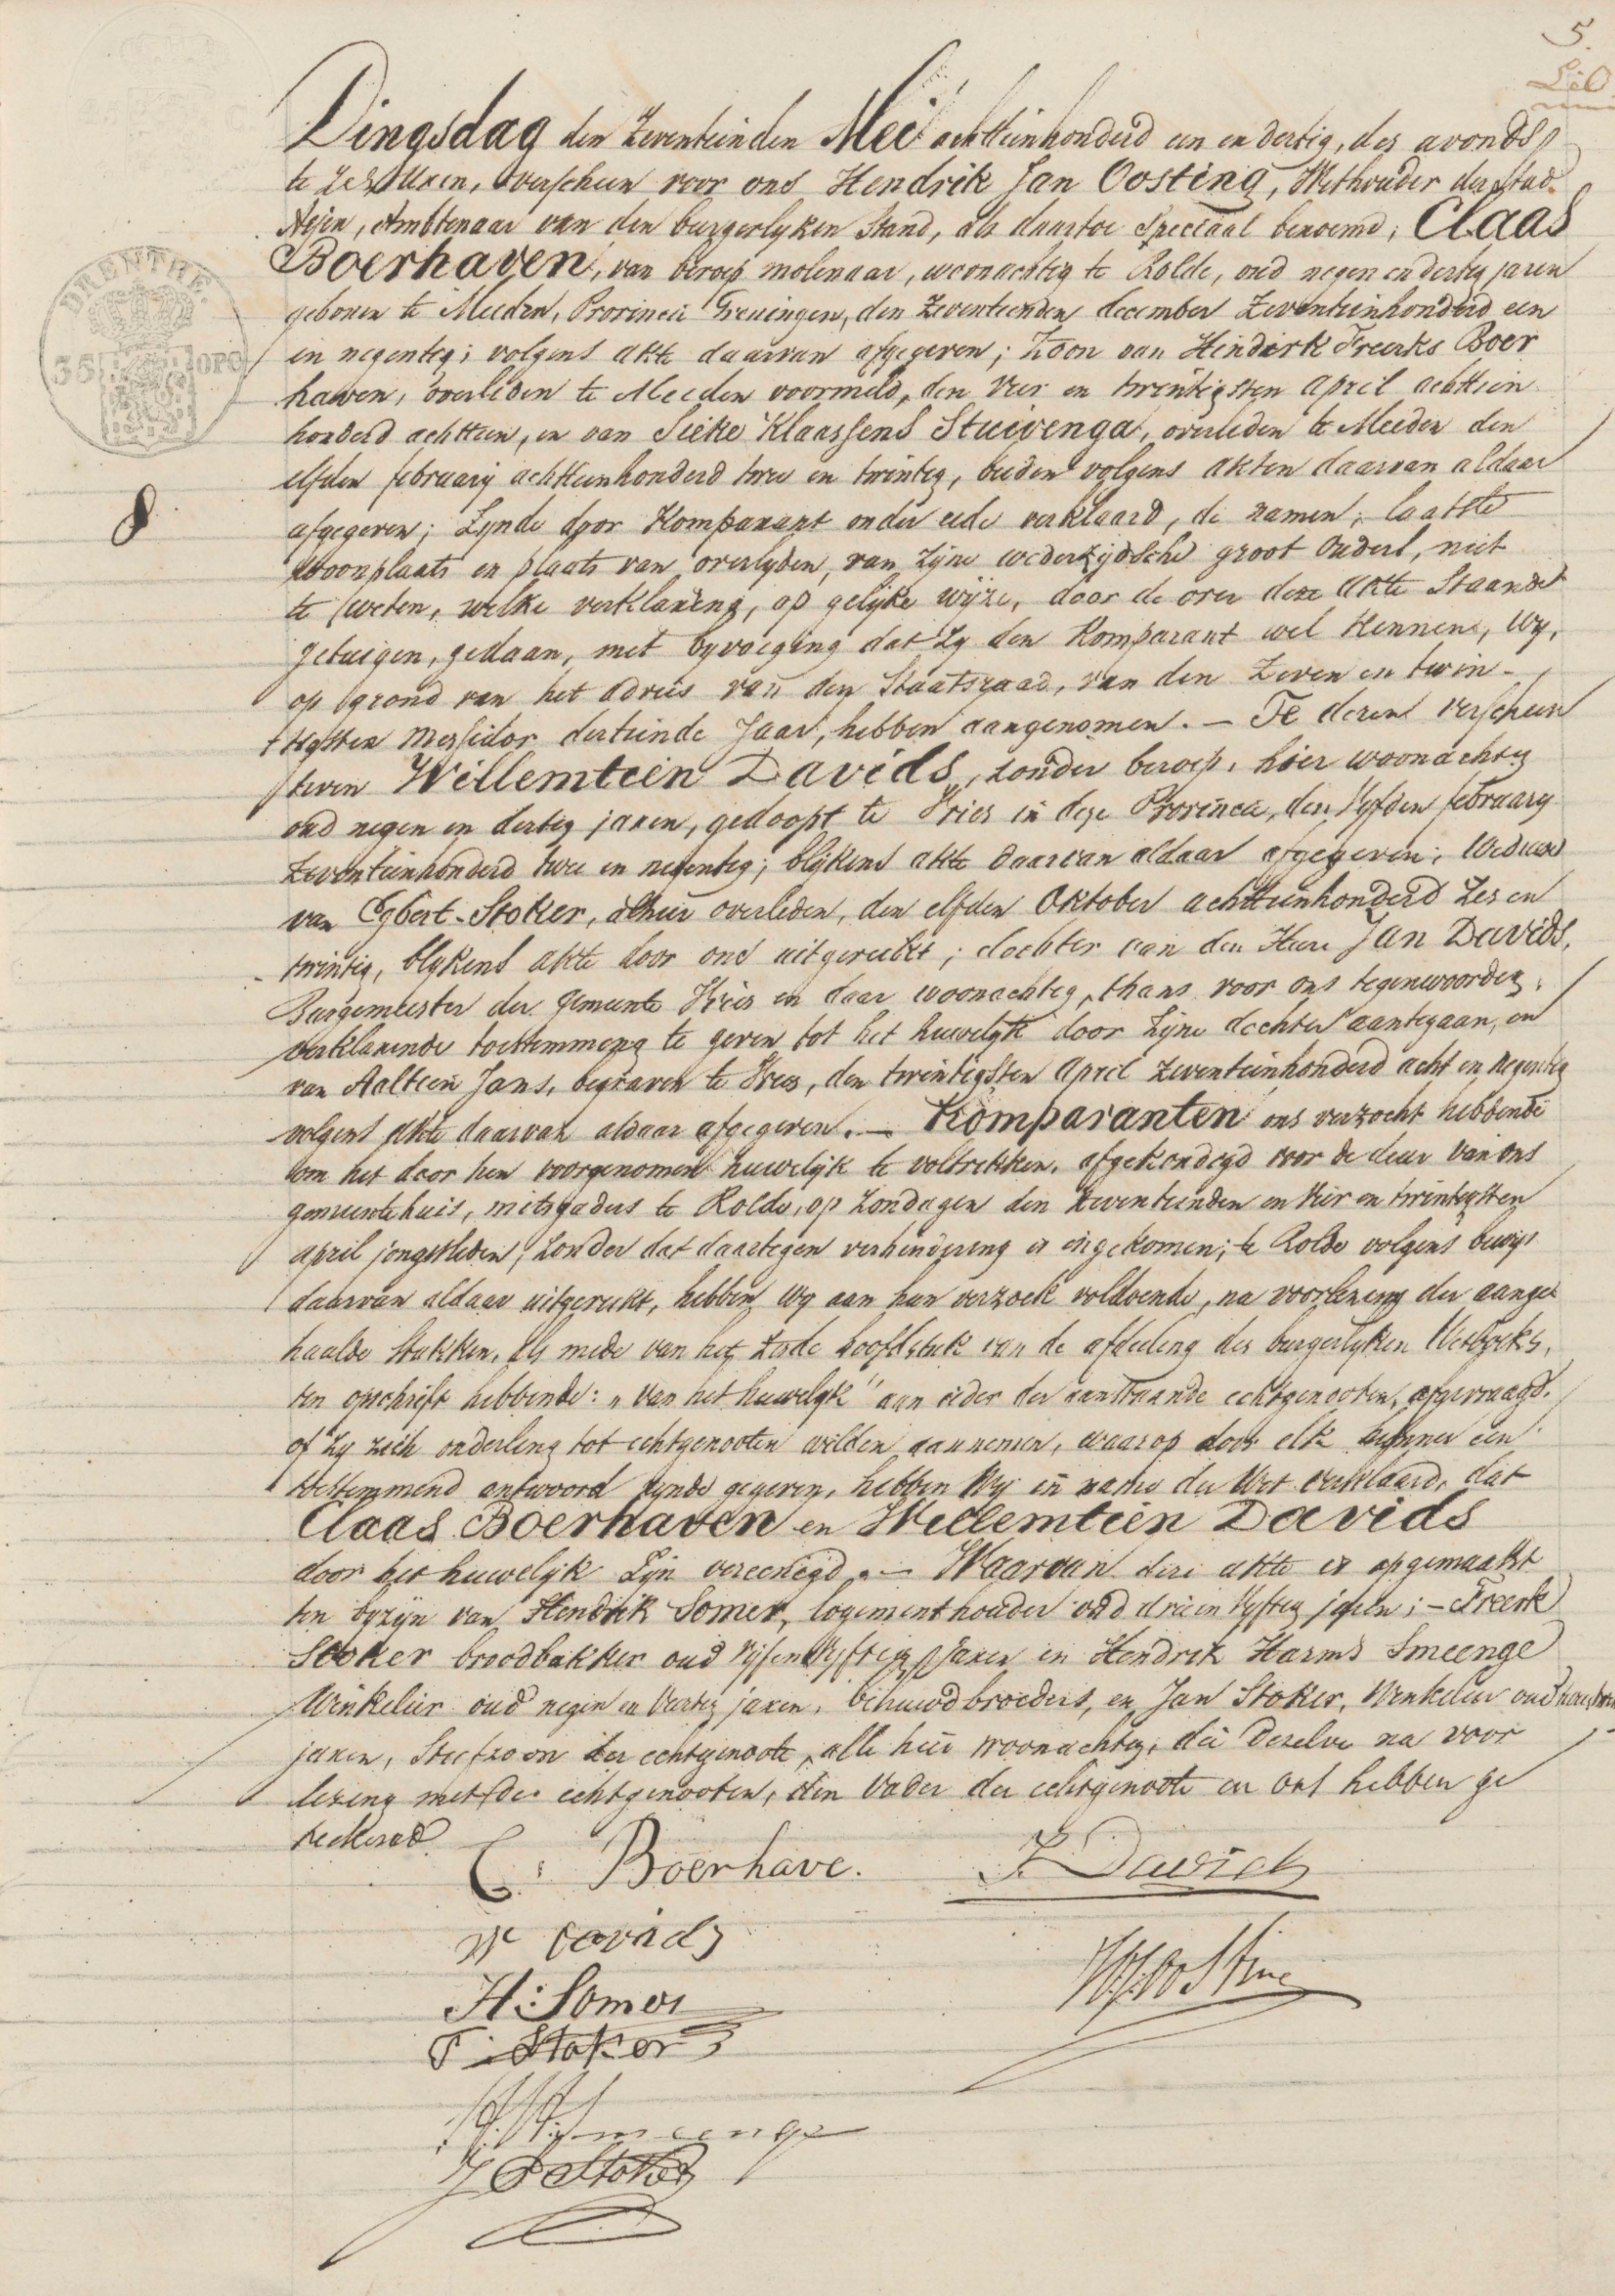 5.
DRENTHE.
35 OPC
8
Dingsdag den Zeventeinden Mei achtteinhonderd een en dertig, des avonds
te zes Uren, verscheen voor ons Hendrik Jan Oosting, Wethouder der stad
Assen, Ambtenaar van den burgerlyken Stand, als daartoe Speciaal benoemd, Claas
Boerhaven, van beroep molenaar, woonachtig te Rolde, oud negen en dertig jaren
geboren te Meeden, Provincie Groningen, den zeventeenden december Zeventeinhonderd een
en negentig; volgens akte daarvan afgegeven; Zoon van Hindirk Freerks Boer
haven, overleden te Meeden voormeld, den vier en twintigsten april achttein
honderd achttein, en van Sieke Klaassens Stuivenga, overleden te Meeden den
elfden february achtteinhonderd twee en twintig, beiden volgens akten daarvan aldaar
afgegeven; Zynde door Komparant onder eede verklaard, de namen, laatste
woonplaats en plaats van overlyden, van Zyne wederzydsche groot Ouders, niet
te weten, welke verklaring, op gelyke wyze, door de over deze akte Staande
getuigen, gedaan, met byvoeging dat Zy den Komparant wel Kennen, Wy,
op grond van het advies van den Staatsraad, van den Zeven en twin-
tigsten Messidor derteinde Jaar, hebben aangenomen. — Te dezen verscheen
tevens Willemtien Davids, zonder beroep, hier woonachtig
oud negen en dertig jaren, gedoopt te Vries in deze Provincie, den Vyfden february
Zeventeinhonderd twee en negentig; blykens akte daarvan aldaar afgegeven; Weduwe
van Egbert Stoker, alhier overleden, den elfden Oktober achtteinhonderd Zes en
twintig, blykens akte door ons uitgereikt; dochter van den Heere Jan Davids,
Burgemeester der gemeente Vries en daar woonachtig, thans voor ons tegenwoordig,
verklarende toestemming te geven tot het huwelyk door Zyne dochter aantegaan, en
van Aaltien Jans, begraven te Vries, den twintigsten april zeventeinhonderd acht en negentig
volgens akte daarvan aldaar afgegeven. — Komparanten ons verzocht hebbende
om het door hen voorgenomen huwelyk te voltrekken, afgekondigd voor de deur van ons
gemeentehuis, mitsgaders te Rolde, op Zondagen den Zeventeinden en vier en twintigsten
april jongstleden, Zonder dat daartegen verhindering is ingekomen; te Rolde volgens bewys
daarvan aldaar uitgereikt, hebben wy aan hun verzoek voldoende, na voorlezing der aange
haalde Stukken, als mede van het zesde hoofdstuk van de afdeeling des burgerlyken Wetboeks,
ten opschrift hebbende: "van het huwelyk" aan ieder der aanstaande echtgenooten, afgevraagd,
of Zy zich onderling tot echtgenooten wilden aannemen, waarop door elk hunner een
toestemmend antwoord zynde gegeven, hebben Wy in name der Wet verklaard, dat
Claas Boerhaven en Willemtien Davids
door het huwelyk Zyn vereenigd. — Waarvan deze akte is opgemaakt
ten byzyn van Hendrik Somer, logementhouder oud drie en Vyftig jaren; — Freerk
Stoker broodbakker oud Vyf en Vyftig Jaren en Hendrik Harms Smeenge
Winkelier oud negen en Veertig jaren, behuwdbroeders, en Jan Stoker, Winkelier oud
jaren, Stiefzoon der echtgenoote, alle hier woonachtig, die dezelve na voor
lezing met de echtgenooten, den Vader der echtgenoote en ons hebben ge
teekend.
C. Boerhave. J. Davids
W davids
H: Somer HJ Oosting
F. Stoker
H. H. Smeenge
J Stoker